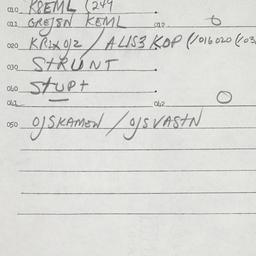 010 KREML (249
011 GREJSN KEML 012
020 KRLXOJ2 / ALIS3 KOP (/016020 (/03
030 STRUNT
060 STUPT
061 062
050 OJSKAMEN / OJSVASTN